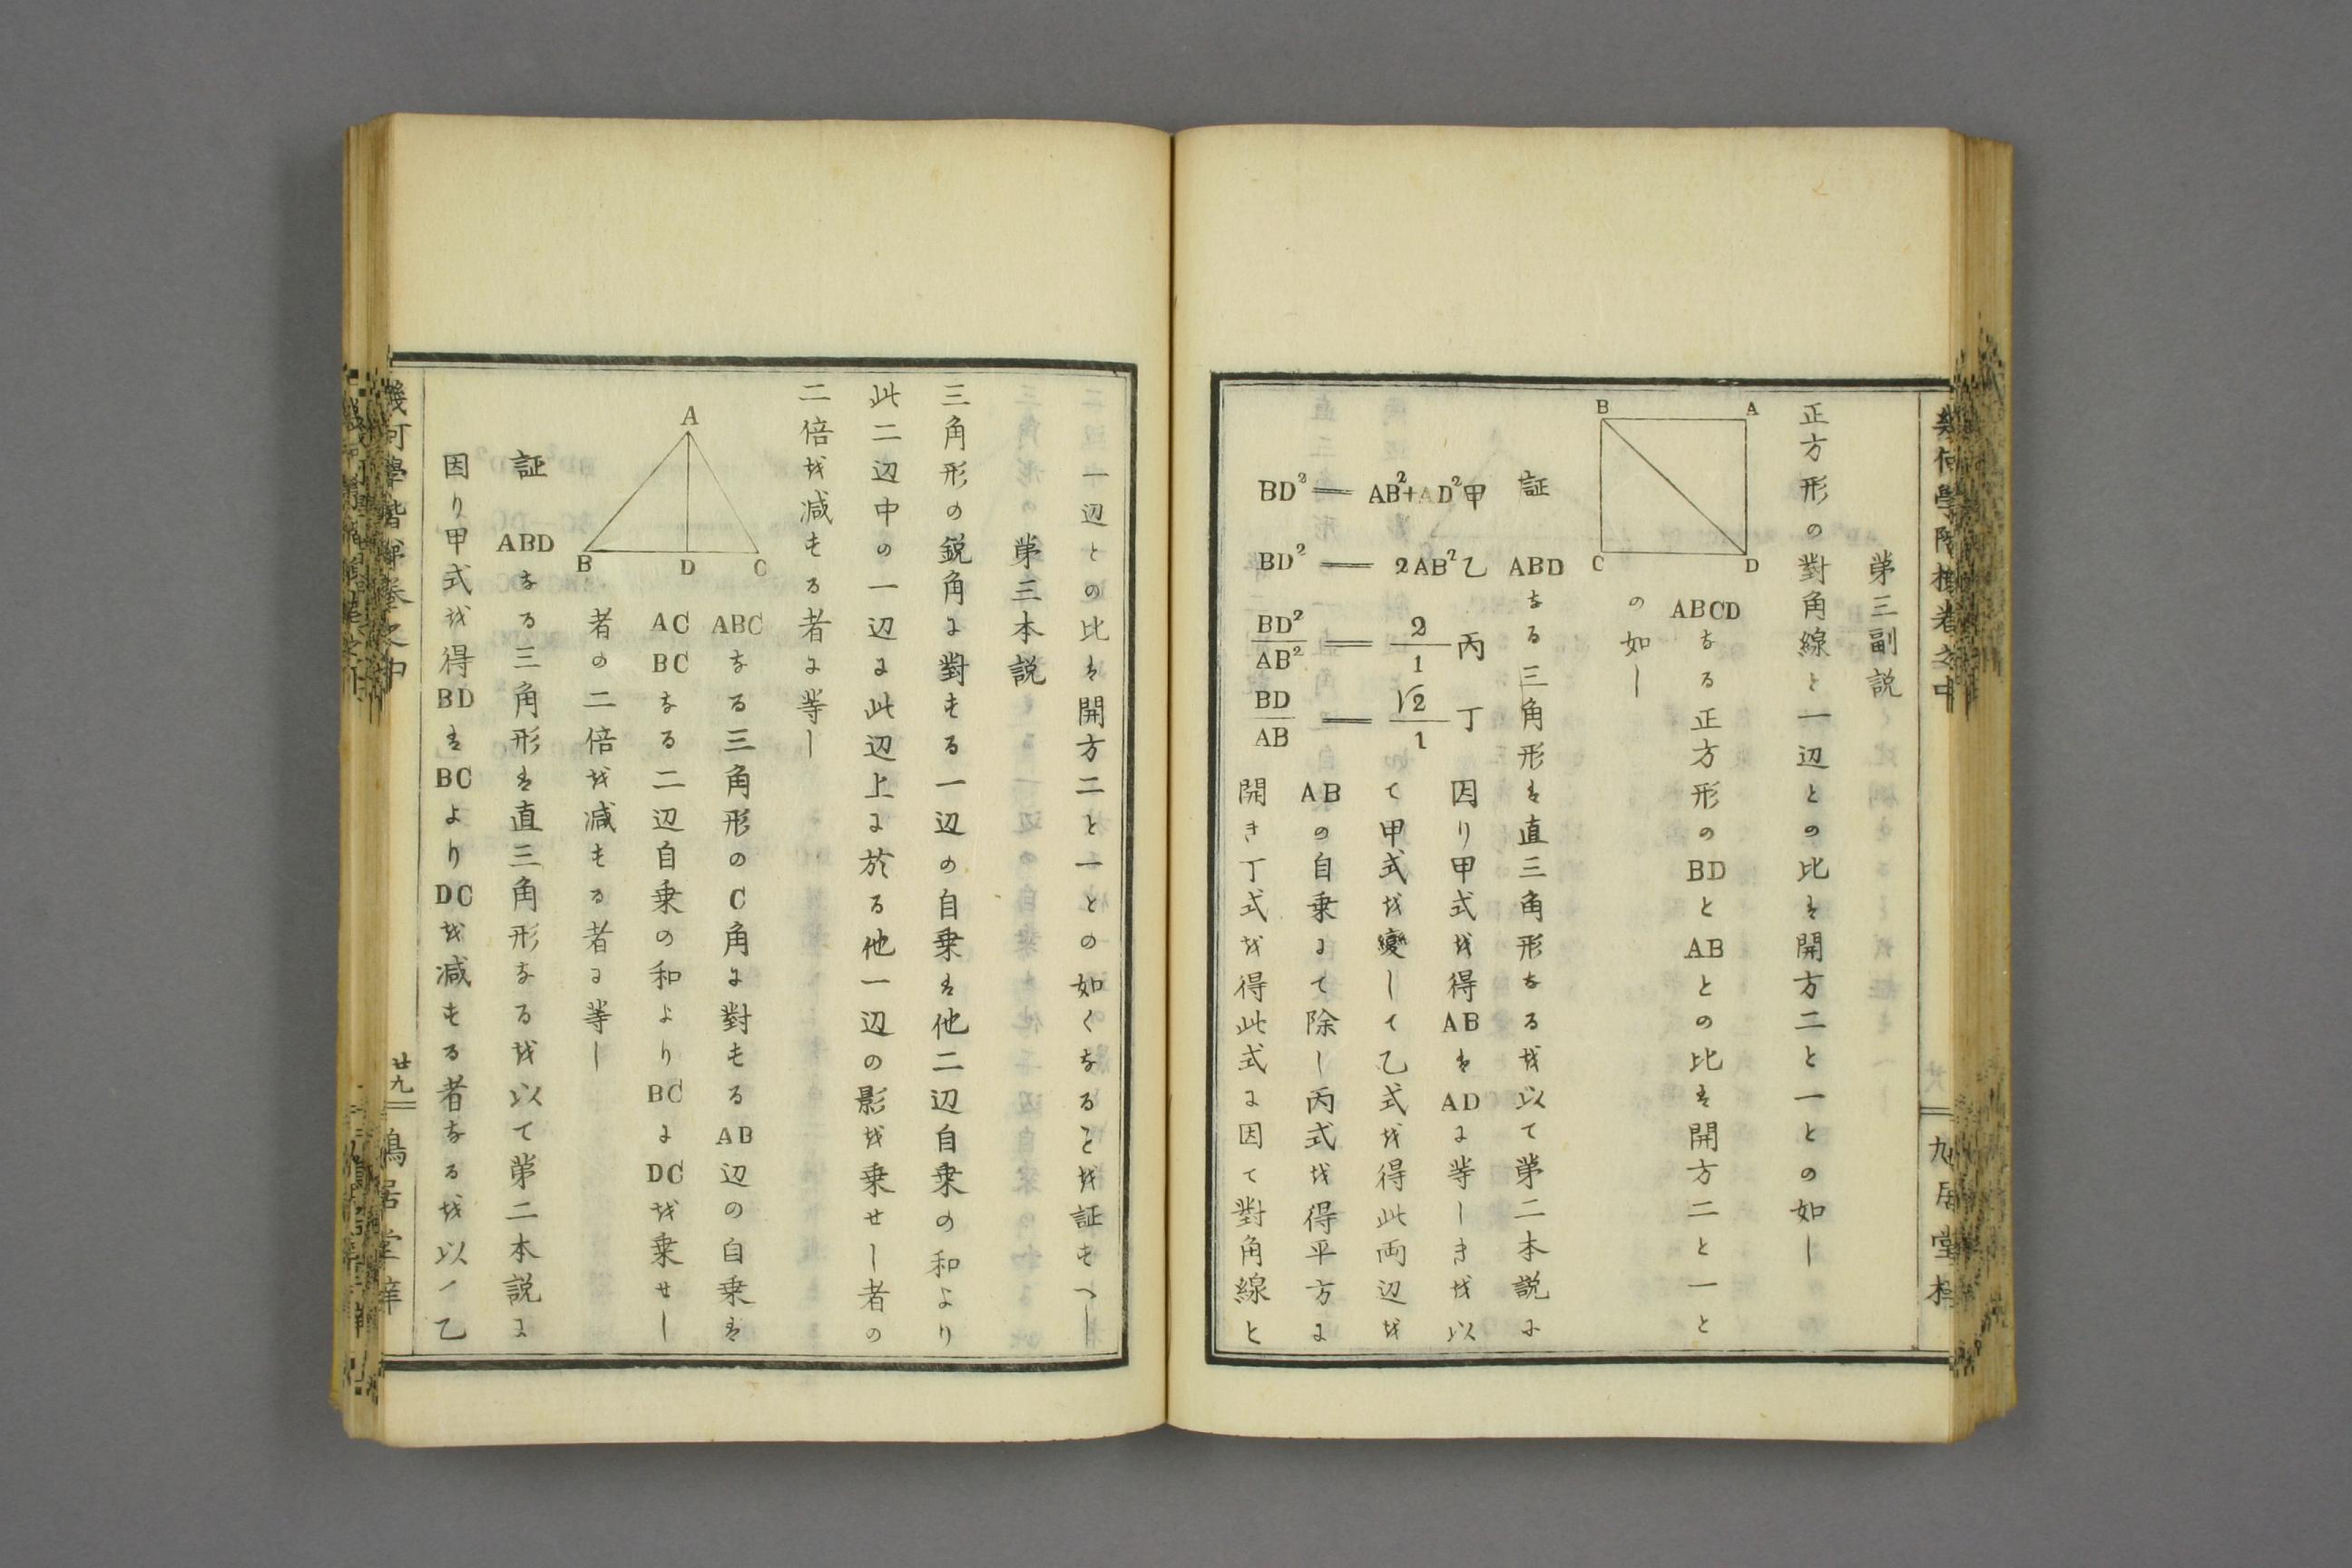 第三副説
正方形の對角線と一辺との比は開方二と一との如し
B A
C D
ABCDなる正方形のBDとABとの比は開方二と一と
の如し
証 ABDなる三角形は直三角形なるを以て第二本説に
因り甲式を得ABはADに等しきを以
て甲式を變して乙式を得此両辺を
ABの自乗にて除し丙式を得平方に
開き丁式を得此式に因て對角線と
BD²＝AB²+AD²甲
BD²＝2AB²乙
BD²/AB²＝2/1丙
BD/AB＝√2/1丁
一辺との比は開方二と一との如くなることを証すへし
第三本説
三角形の鋭角に對する一辺の自乗は他二辺自乗の和より
此二辺中の一辺に此辺上に於る他一辺の影を乗せし者の
二倍を減する者に等し
A
B D C
ABCなる三角形のC角に對するAB辺の自乗は
AC BCなる二辺自乗の和よりBCにDCを乗せし
者の二倍を減する者に等し
証 ABDなる三角形は直三角形なるを以て第二本説に
因り甲式を得BDはBCよりDCを減する者なるを以ノ乙
廿九